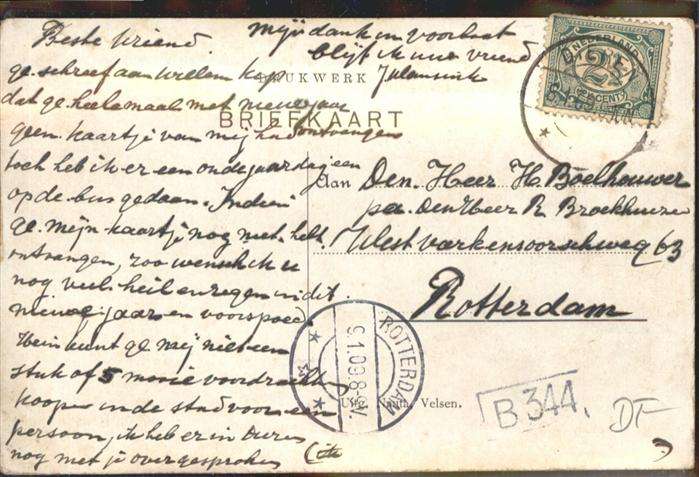 Beste Vriend
ge schreef aan Willem Kop
dat ge heelemaal met nieuwjaar
geen kaartje van mij had ontvangen
toch heb ik er een oudejaardag een
op de bus gedaan. Indien
ge mijn kaartje nog niet hebt
ontvangen, zoo wensch ik u
nog veel heil en zegen in dit
nieuwe jaar en voorspoed
Hein kunt ge mij niet een
stuk of 5 mooie voordrachten
koopen in de stad voor een
persoon, ik heb er in Duren
nog met je over gesproken
mijn dank en voorbaat
blijf ik uw vriend
DRUKWERK
BRIEFKAART
Aan Den Heer H. Boelhouwer
pa. Den Heer R. Broekhuize
West varkenoordscheweg 63
Rotterdam
NEDERLAND
2½
CENT
ROTTERDAM
9.1.09.8-9V.
Uitg. Velsen.
B 344.
DF